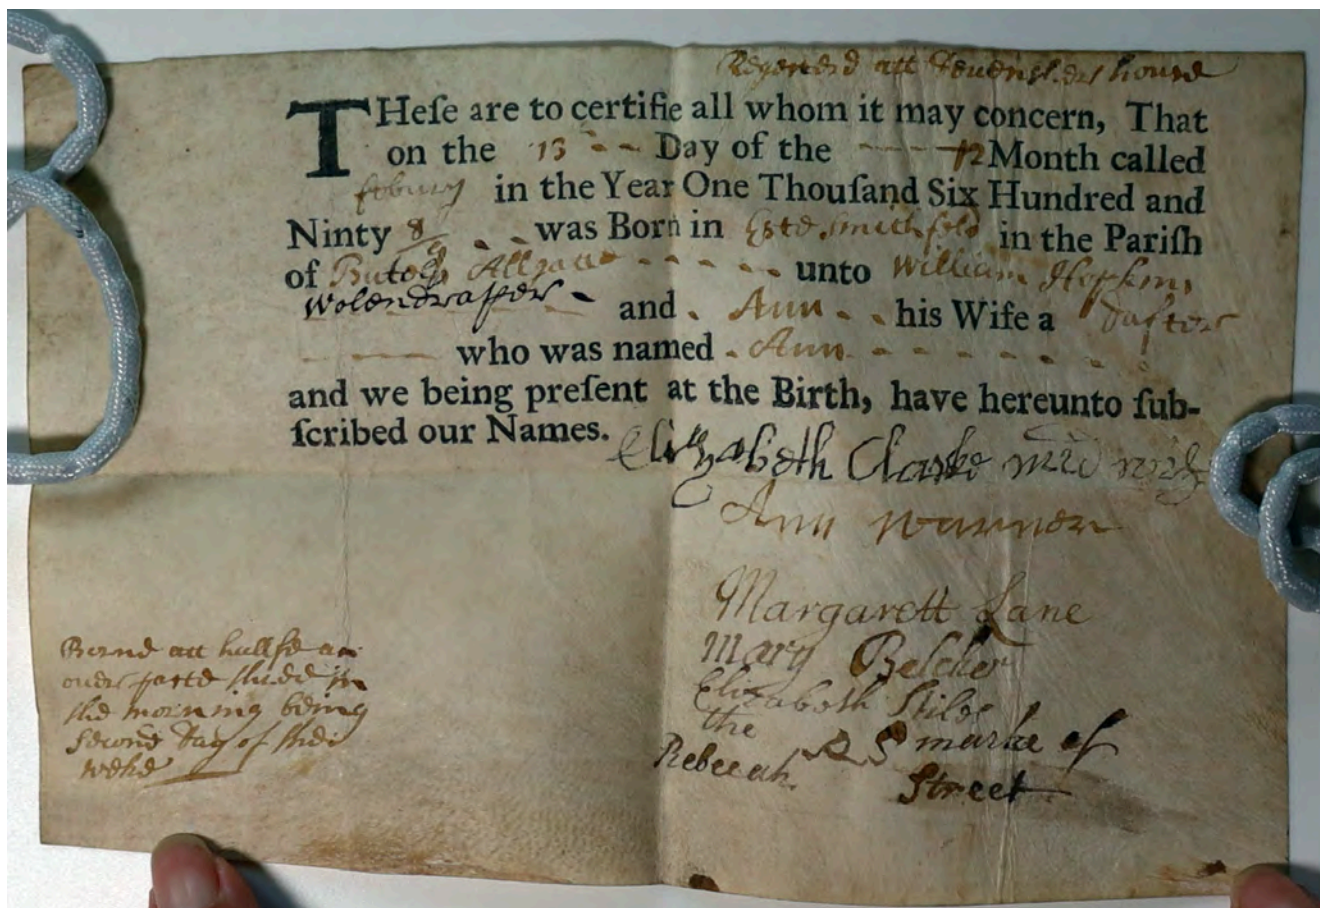 Regesterd att Devenshers house
THeſe are to certifie all whom it may concern, That
on the 13 - - Day of the - - - 12 Month called
febuary in the Year One Thouſand Six Hundred and
Ninty 8/9 - - was Born in Este Smithfeld in the Pariſh
of Butolp Allgate - - - - - - unto William Hopkins
Wolendraper - and - Ann - - his Wife a dafter
who was named - Ann - - - - - - -
and we being preſent at the Birth, have hereunto ſub-
ſcribed our Names.
Elizabeth Clarke mid wife
Ann
Margarett Lane
Mary Belcher
Elizabeth Stiles
the R S marke of
Rebecah Street
Borne att hallfe an
ouer paste thre in
the morning being
Second day of the
weke